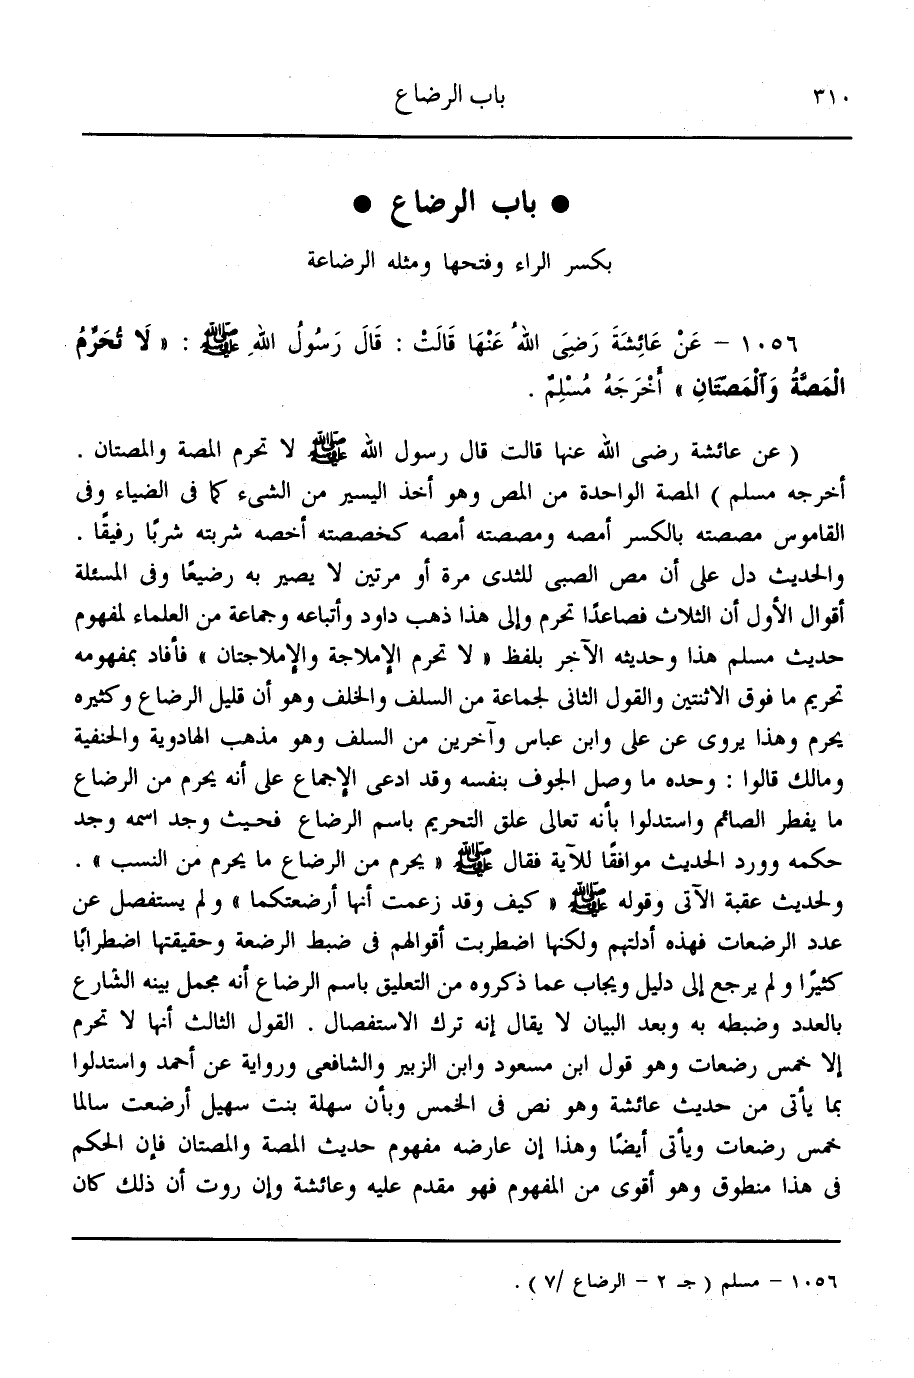 ٣١٠
باب الرضاع
● باب الرضاع ●
بكسر الراء وفتحها ومثله الرضاعة
١٠٥٦ – عَنْ عَائِشَةَ رَضِىَ اللهُ عَنْهَا قَالَتْ : قَالَ رَسُولُ اللهِ ﷺ : « لَا تُحَرِّمُ
الْمَصَّةُ وَٱلْمَصَّتَانِ » أَخْرَجَهُ مُسْلِمٌ .
( عن عائشة رضى الله عنها قالت قال رسول الله ﷺ لا تحرم المصة والمصتان .
أخرجه مسلم ) المصة الواحدة من المص وهو أخذ اليسير من الشىء كما فى الضياء وفى
القاموس مصصته بالكسر أمصه ومصصته أمصه كخصصته أخصه شربته شربًا رفيقًا .
والحديث دل على أن مص الصبى للثدى مرة أو مرتين لا يصير به رضيعًا وفى المسئلة
أقوال الأول أن الثلاث فصاعدًا تحرم وإلى هذا ذهب داود وأتباعه وجماعة من العلماء لمفهوم
حديث مسلم هذا وحديثه الآخر بلفظ « لا تحرم الإملاجة والإملاجتان » فأفاد بمفهومه
تحريم ما فوق الاثنتين والقول الثانى لجماعة من السلف والخلف وهو أن قليل الرضاع وكثيره
يحرم وهذا يروى عن على وابن عباس وآخرين من السلف وهو مذهب الهادوية والحنفية
ومالك قالوا : وحده ما وصل الجوف بنفسه وقد ادعى الإجماع على أنه يحرم من الرضاع
ما يفطر الصائم واستدلوا بأنه تعالى علق التحريم باسم الرضاع فحيث وجد اسمه وجد
حكمه وورد الحديث موافقًا للآية فقال ﷺ « يحرم من الرضاع ما يحرم من النسب » .
ولحديث عقبة الآتى وقوله ﷺ « كيف وقد زعمت أنها أرضعتكما » ولم يستفصل عن
عدد الرضعات فهذه أدلتهم ولكنها اضطربت أقوالهم فى ضبط الرضعة وحقيقتها اضطرابًا
كثيرًا ولم يرجع إلى دليل ويجاب عما ذكروه من التعليق باسم الرضاع أنه مجمل بينه الشارع
بالعدد وضبطه به وبعد البيان لا يقال إنه ترك الاستفصال . القول الثالث أنها لا تحرم
إلا خمس رضعات وهو قول ابن مسعود وابن الزبير والشافعى ورواية عن أحمد واستدلوا
بما يأتى من حديث عائشة وهو نص فى الخمس وبأن سهلة بنت سهيل أرضعت سالما
خمس رضعات ويأتى أيضًا وهذا إن عارضه مفهوم حديث المصة والمصتان فإن الحكم
فى هذا منطوق وهو أقوى من المفهوم فهو مقدم عليه وعائشة وإن روت أن ذلك كان
١٠٥٦ – مسلم ( جـ ٢ – الرضاع /٧ ) .